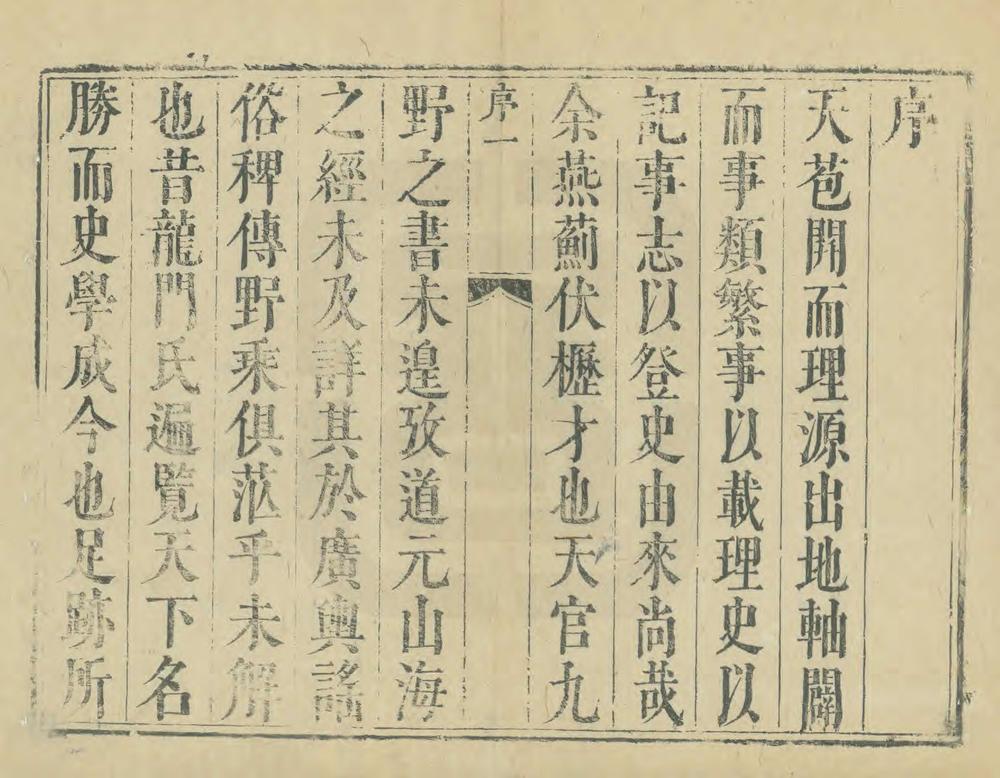 序
天苞開而理源出地軸闢
而事類繁事以載理史以
記事志以登史由來尚哉
余燕薊伏櫪才也天官九
序一
野之書未遑攷道元山海
之經未及詳其於廣輿謠
俗稗傳野乘俱茫乎未解
也昔龍門氏遍覽天下名
勝而史學成今也足跡所